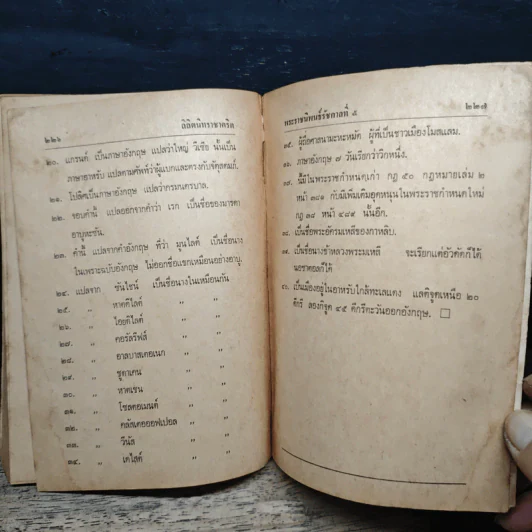 ๒๒๖ ลิลิตนิทราชาคริต
๒๐. แกรนด์ เป็นภาษาอังกฤษ แปลว่าใหญ่ วิเซีย นั้นเป็น
ภาษาอาหรับ แปลตามศัพท์ว่าผู้แบกและตรงกับจัตุสดมภ์.
๒๑. โปลิศเป็นภาษาอังกฤษ แปลว่ากรมนครบาล.
๒๒. ขอบคำนี้ แปลออกจากคำว่า เรก เป็นชื่อของมารดา
อาบูหะซัน.
๒๓. คำนี้ แปลจากคำอังกฤษ ที่ว่า มูนไลต์ เป็นชื่อนาง
ในเพราะฉบับอังกฤษ ไม่ออกชื่อแขกเหมือนอย่างอาบู.
๒๔. แปลจาก ซันไชน์ เป็นชื่อนางในเหมือนกัน
๒๕. ,, หาดดิไลต์ ,, ,,
๒๖. ,, ไอยดิไลต์ ,, ,,
๒๗. ,, คอรัลริฟส์ ,, ,,
๒๘. ,, อาลบาสเตอเนก ,, ,,
๒๙. ,, ชูคาเคน ,, ,,
๓๐. ,, หาดเซน ,, ,,
๓๑. ,, โซลตอเมนต์ ,, ,,
๓๒. ,, คลัสเตอออฟเปอล ,, ,,
๓๓. ,, วีนัส ,, ,,
๓๔. ,, เดไลต์ ,, ,,
พระราชนิพนธ์รัชกาลที่ ๕ ๒๒๗
๓๕. ผู้ถือศาสนามะหะหมัด ผู้ที่เป็นชาวเมืองโมสแลม.
๓๖. ภาษาอังกฤษ ๗ วันเรียกว่าวีกหนึ่ง.
๓๗. นี้มีในพระราชกำหนดเก่า กฎ ๕๐ กฎหมายเล่ม ๒
หน้า ๓๘๑ กับมีเพิ่มเติมอุดหนุนในพระราชกำหนดใหม่
กฎ ๓๘ หน้า ๔๘๙ นั้นอีก.
๓๘. เป็นชื่อพระอัครมเหสีของกาหลิบ.
๓๙. เป็นชื่อนางข้าหลวงพระมเหสี จะเรียกแต่อัวดัดก็ได้
นอซาดอลก็ได้
๔๐. เป็นเมืองอยู่ในอาหรับใกล้ทะเลแดง แลติจูดเหนือ ๒๐
ดีกรี ลองกิจูด ๔๕ ดีกรีตะวันออกอังกฤษ.